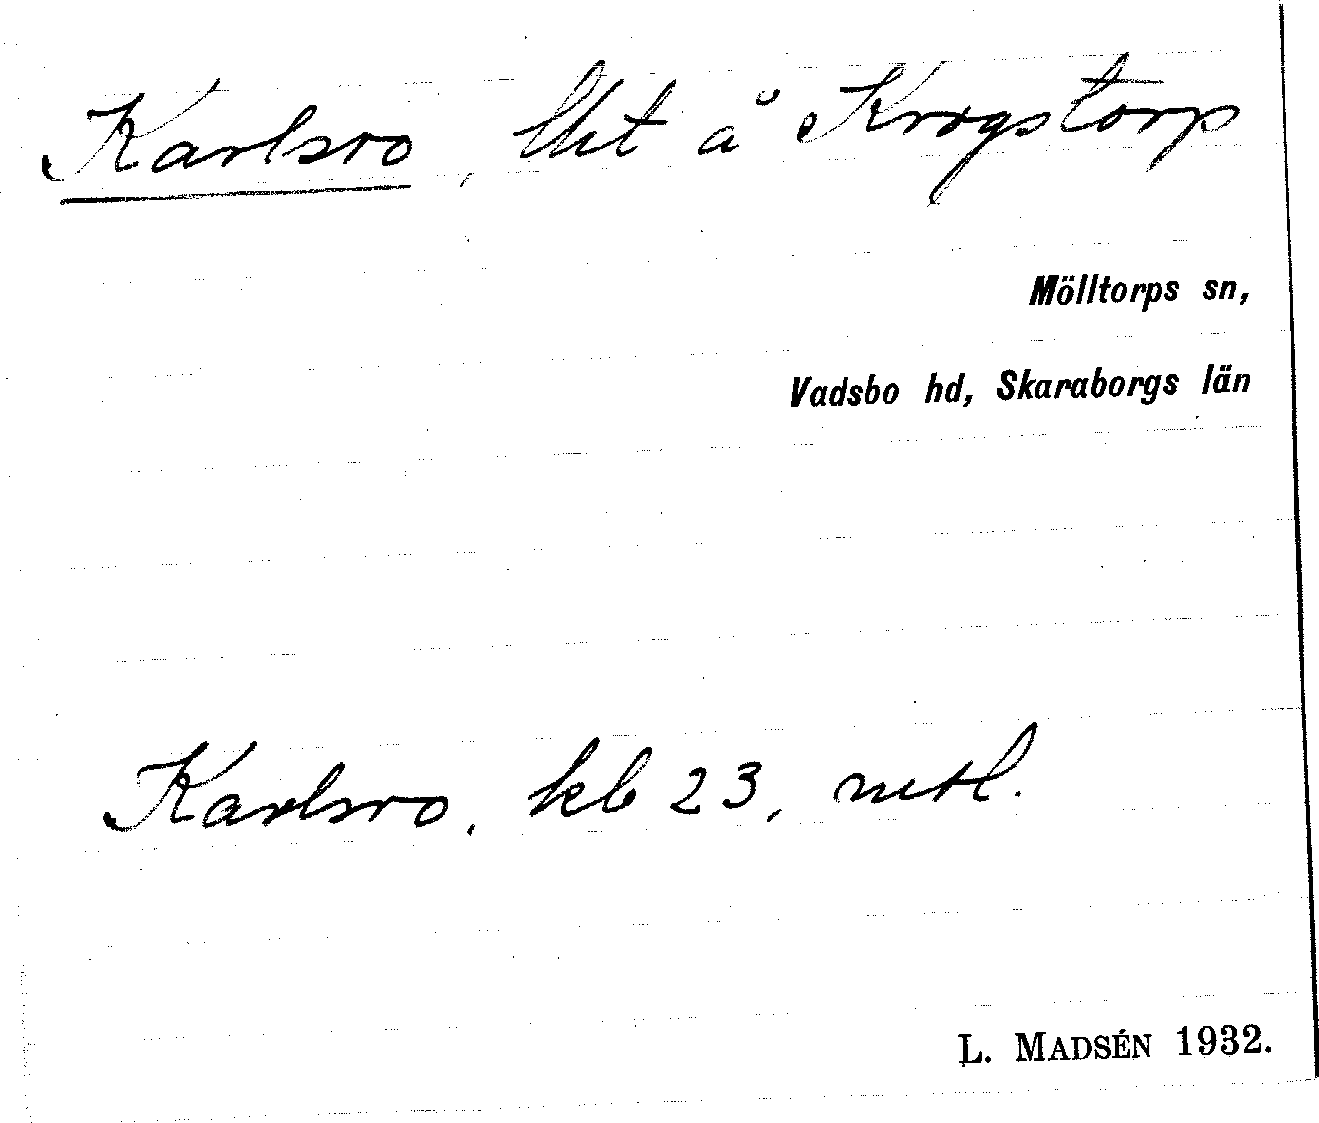 Karlsro, lht å Krogstorp
Mölltorps sn,
Vadsbo hd, Skaraborgs län
Karlsro, kb 23, mtl.
L. MADSÉN 1932.